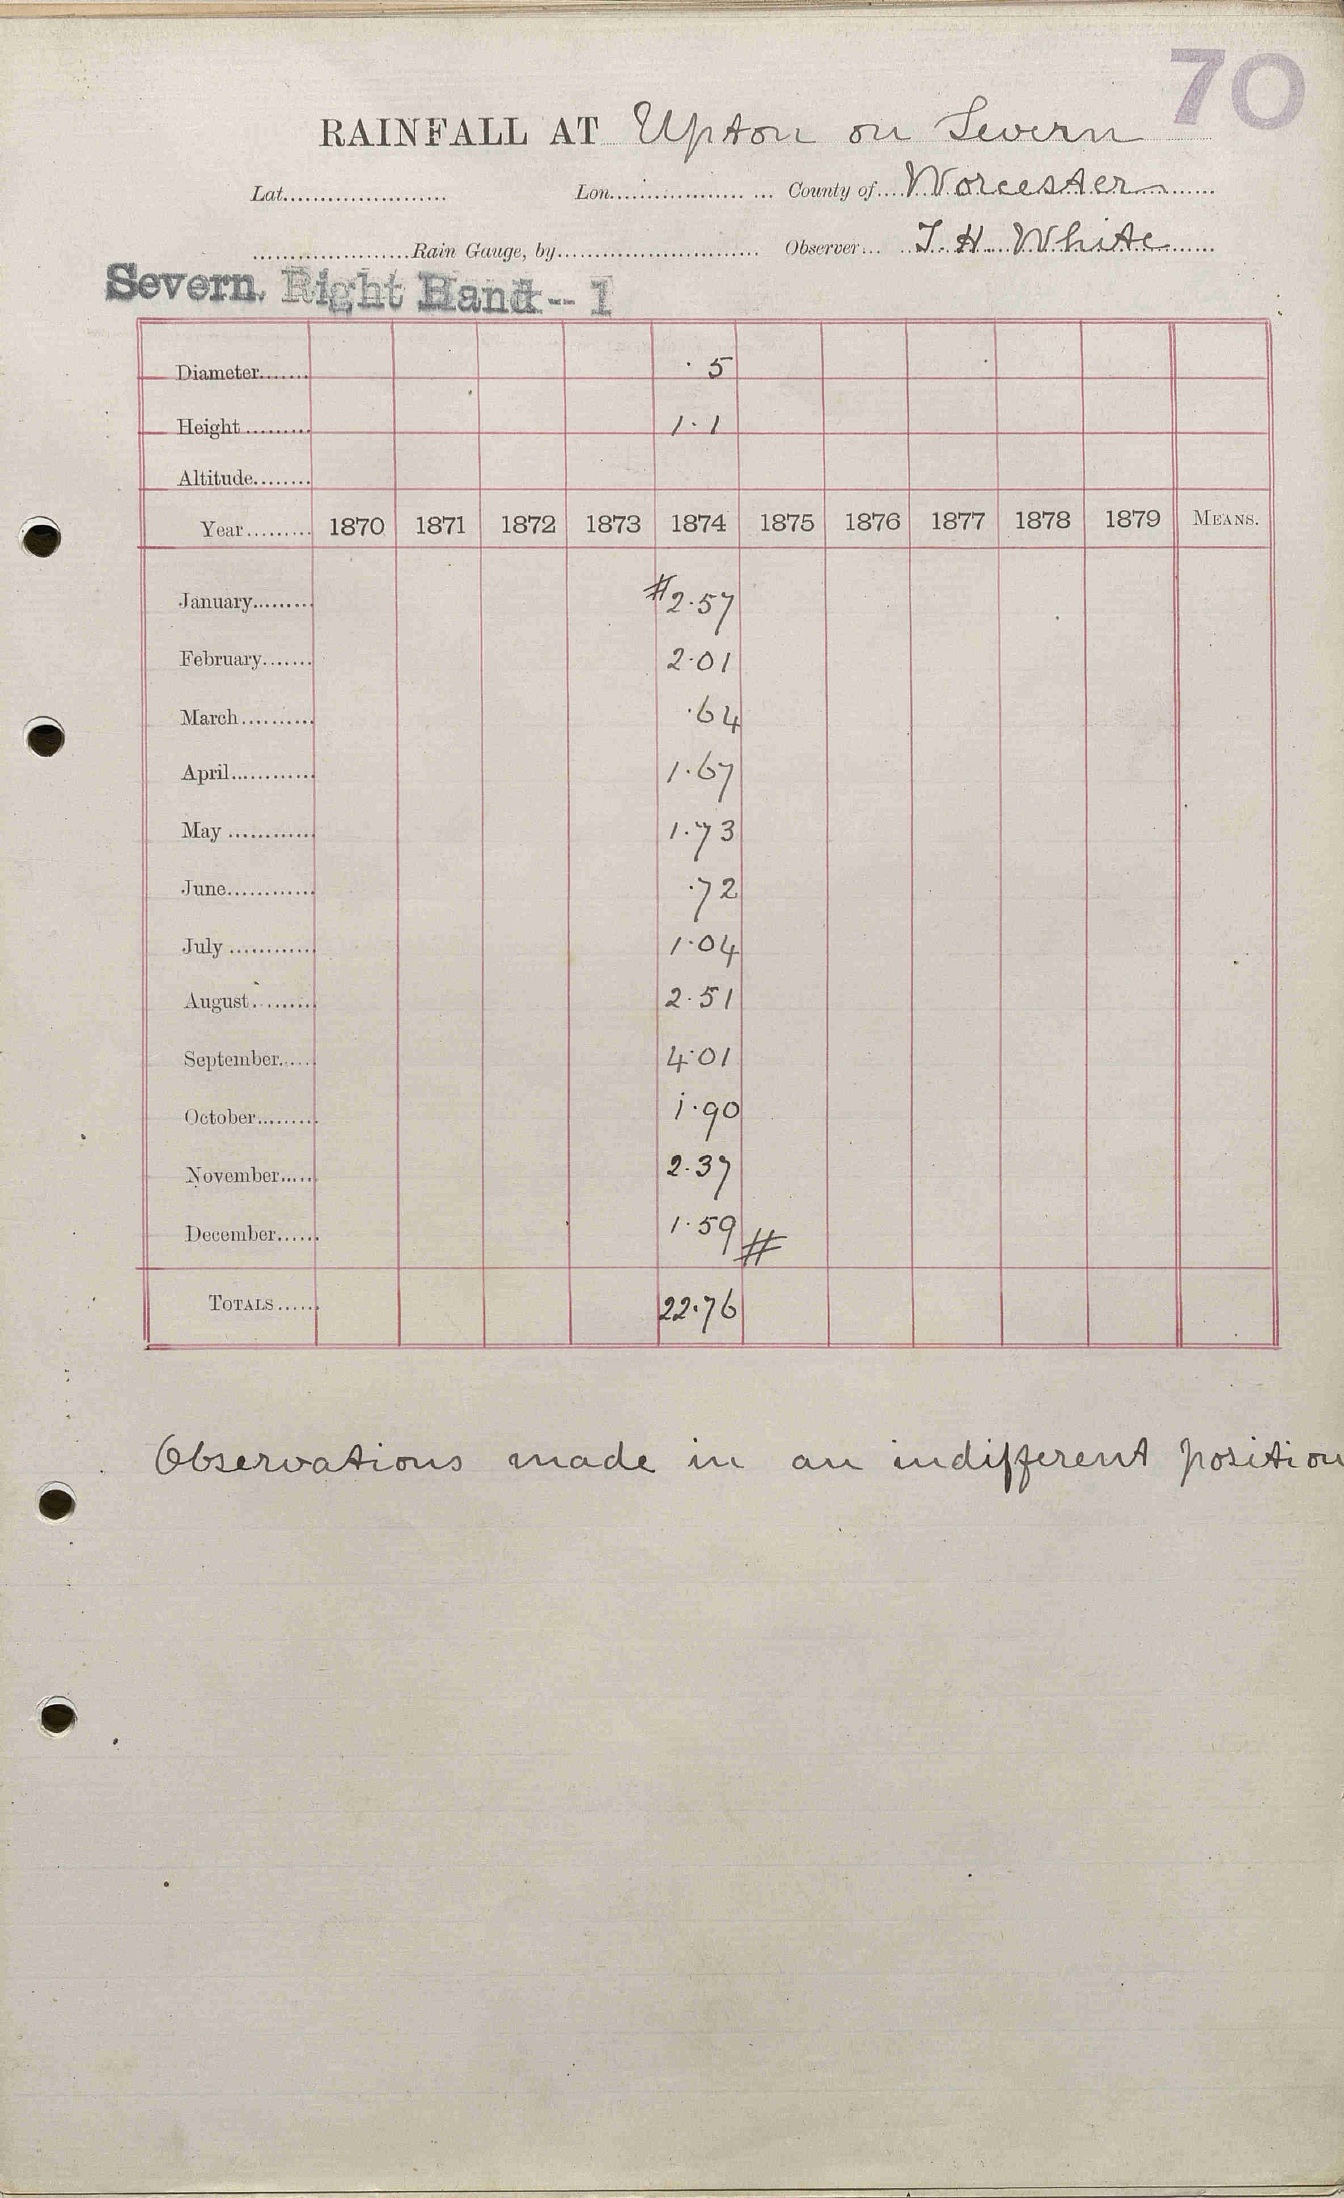 70
RAINFALL AT Upton on Severn
Lat...................... Lon...................... County of.... Worcester
......................Rain Gauge, by............................ Observer... T. H. White
Severn. Right Hand -- 1
Diameter....... · 5
Height ......... 1·1
Altitude........
Year......... 1870 1871 1872 1873 1874 1875 1876 1877 1878 1879 MEANS.
January......... #2·57
February....... 2·01
March.......... ·64
April............ 1·67
May ............ 1·73
June............ ·72
July ............ 1·04
August......... 2·51
September..... 4·01
October......... 1·90
November..... 2·37
December...... 1·59 #
TOTALS...... 22·76
Observations made in an indifferent position